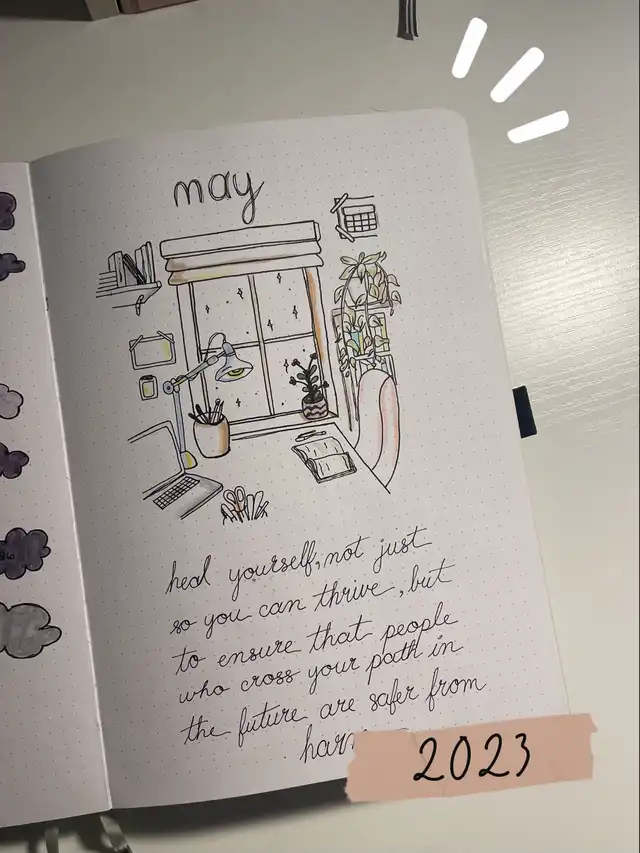 may
heal yourself, not just
so you can thrive, but
to ensure that people
who cross your path in
the future are safer from
2023